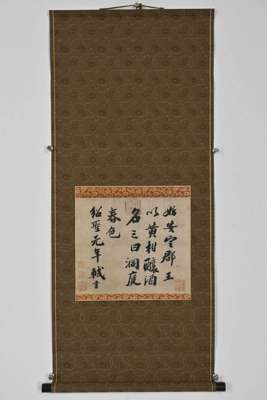 始安定郡王
以黃柑釀酒
名之曰洞庭
春色
紹聖元年 軾書